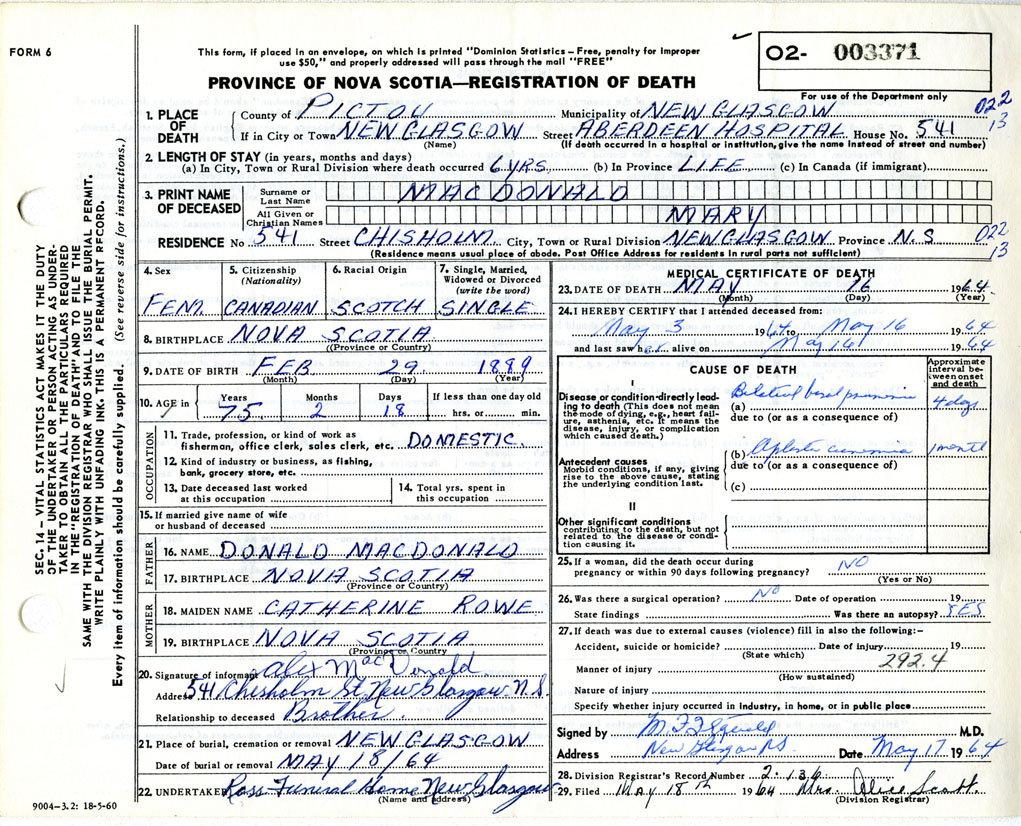 FORM 6
This form, if placed in an envelope, on which is printed "Dominion Statistics – Free, penalty for improper
use $50," and properly addressed will pass through the mail "FREE"
O2- 003371
For use of the Department only
PROVINCE OF NOVA SCOTIA—REGISTRATION OF DEATH
022
13
1. PLACE OF DEATH
County of PICTOU Municipality of NEW GLASGOW
If in City or Town NEW GLASGOW Street ABERDEEN HOSPITAL House No. 541
(Name) (If death occurred in a hospital or institution, give the name instead of street and number)
2. LENGTH OF STAY (in years, months and days)
(a) In City, Town or Rural Division where death occurred 6 YRS. (b) In Province LIFE (c) In Canada (if immigrant)
3. PRINT NAME OF DECEASED
Surname or Last Name MACDONALD
All Given or Christian Names MARY
RESIDENCE No 541 Street CHISHOLM City, Town or Rural Division NEW GLASGOW Province N.S
022
13
(Residence means usual place of abode. Post Office Address for residents in rural parts not sufficient)
4. Sex FEM.
5. Citizenship (Nationality) CANADIAN
6. Racial Origin SCOTCH
7. Single, Married, Widowed or Divorced (write the word) SINGLE
8. BIRTHPLACE NOVA SCOTIA
(Province or Country)
9. DATE OF BIRTH FEB 29 1889
(Month) (Day) (Year)
10. AGE in Years 75 Months 2 Days 18 If less than one day old hrs. or min.
OCCUPATION
11. Trade, profession, or kind of work as fisherman, office clerk, sales clerk, etc. DOMESTIC.
12. Kind of industry or business, as fishing, bank, grocery store, etc.
13. Date deceased last worked at this occupation
14. Total yrs. spent in this occupation
15. If married give name of wife or husband of deceased
FATHER
16. NAME DONALD MACDONALD
17. BIRTHPLACE NOVA SCOTIA
(Province or Country)
MOTHER
18. MAIDEN NAME CATHERINE ROWE
19. BIRTHPLACE NOVA SCOTIA
(Province or Country
20. Signature of informant Alex MacDonald
Address 541 Chisholm St. New Glasgow N.S.
Relationship to deceased Brother.
21. Place of burial, cremation or removal NEW GLASGOW
Date of burial or removal MAY 18/64
22. UNDERTAKER Ross Funeral Home New Glasgow
(Name and address)
9004–3.2: 18-5-60
MEDICAL CERTIFICATE OF DEATH
23. DATE OF DEATH MAY 16 1964
(Month) (Day) (Year)
24. I HEREBY CERTIFY that I attended deceased from:
May 3 1964 to May 16 1964
and last saw her alive on May 16 1964
CAUSE OF DEATH
Approximate interval between onset and death
I
Disease or condition directly leading to death (This does not mean the mode of dying, e.g., heart failure, asthenia, etc. It means the disease, injury, or complication which caused death.)
(a) Bilateral basal pneumonia 4 days
due to (or as a consequence of)
Antecedent causes
Morbid conditions, if any, giving rise to the above cause, stating the underlying condition last.
(b) Aplastic anaemia 1 month
due to (or as a consequence of)
(c)
II
Other significant conditions
contributing to the death, but not related to the disease or condition causing it.
25. If a woman, did the death occur during pregnancy or within 90 days following pregnancy? NO
(Yes or No)
26. Was there a surgical operation? No Date of operation 19
State findings Was there an autopsy? YES
27. If death was due to external causes (violence) fill in also the following:–
Accident, suicide or homicide? Date of injury 19
(State which)
292.4
Manner of injury
(How sustained)
Nature of injury
Specify whether injury occurred in industry, in home, or in public place
Signed by M.D.
Address New Glasgow NS. Date May 17 1964
28. Division Registrar's Record Number 2-136
29. Filed MAY 18th 1964 Mrs. Alice Scott.
(Division Registrar)
SEC. 14 – VITAL STATISTICS ACT MAKES IT THE DUTY
OF THE UNDERTAKER OR PERSON ACTING AS UNDER-
TAKER TO OBTAIN ALL THE PARTICULARS REQUIRED
IN THE "REGISTRATION OF DEATH" AND TO FILE THE
SAME WITH THE DIVISION REGISTRAR WHO SHALL ISSUE THE BURIAL PERMIT.
WRITE PLAINLY WITH UNFADING INK. THIS IS A PERMANENT RECORD.
Every item of information should be carefully supplied. (See reverse side for instructions.)